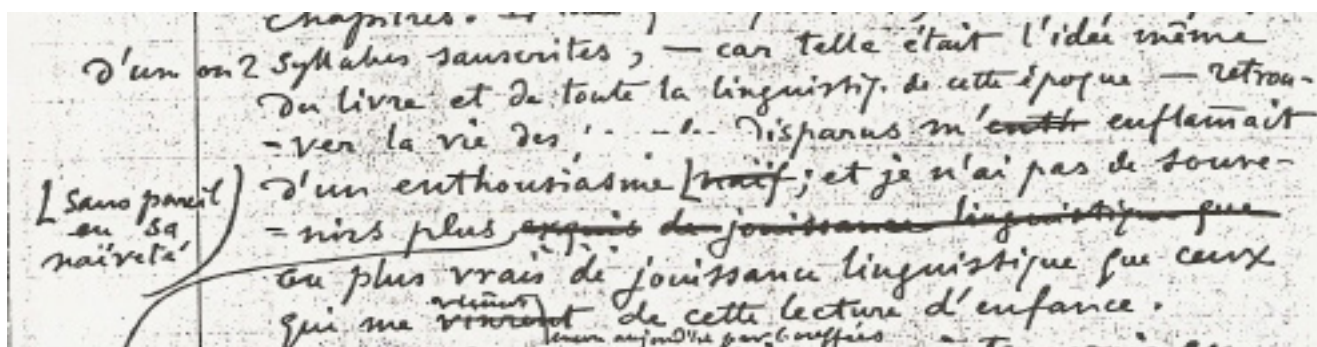 chapitres.
d'un ou 2 syllabes sanscrites, — car telle était l'idée même
du livre et de toute la linguistiq. de cette époque — retrou-
-ver la vie des disparus m'enth enflammait
d'un enthousiasme [naïf; et je n'ai pas de souve-
[sans pareil
en sa
naïveté
-nirs plus exquis de jouissance linguistique que
ou plus vrais de jouissance linguistique que ceux
vienent
qui me vinrent de cette lecture d'enfance.
encore aujourd'hui par bouffées